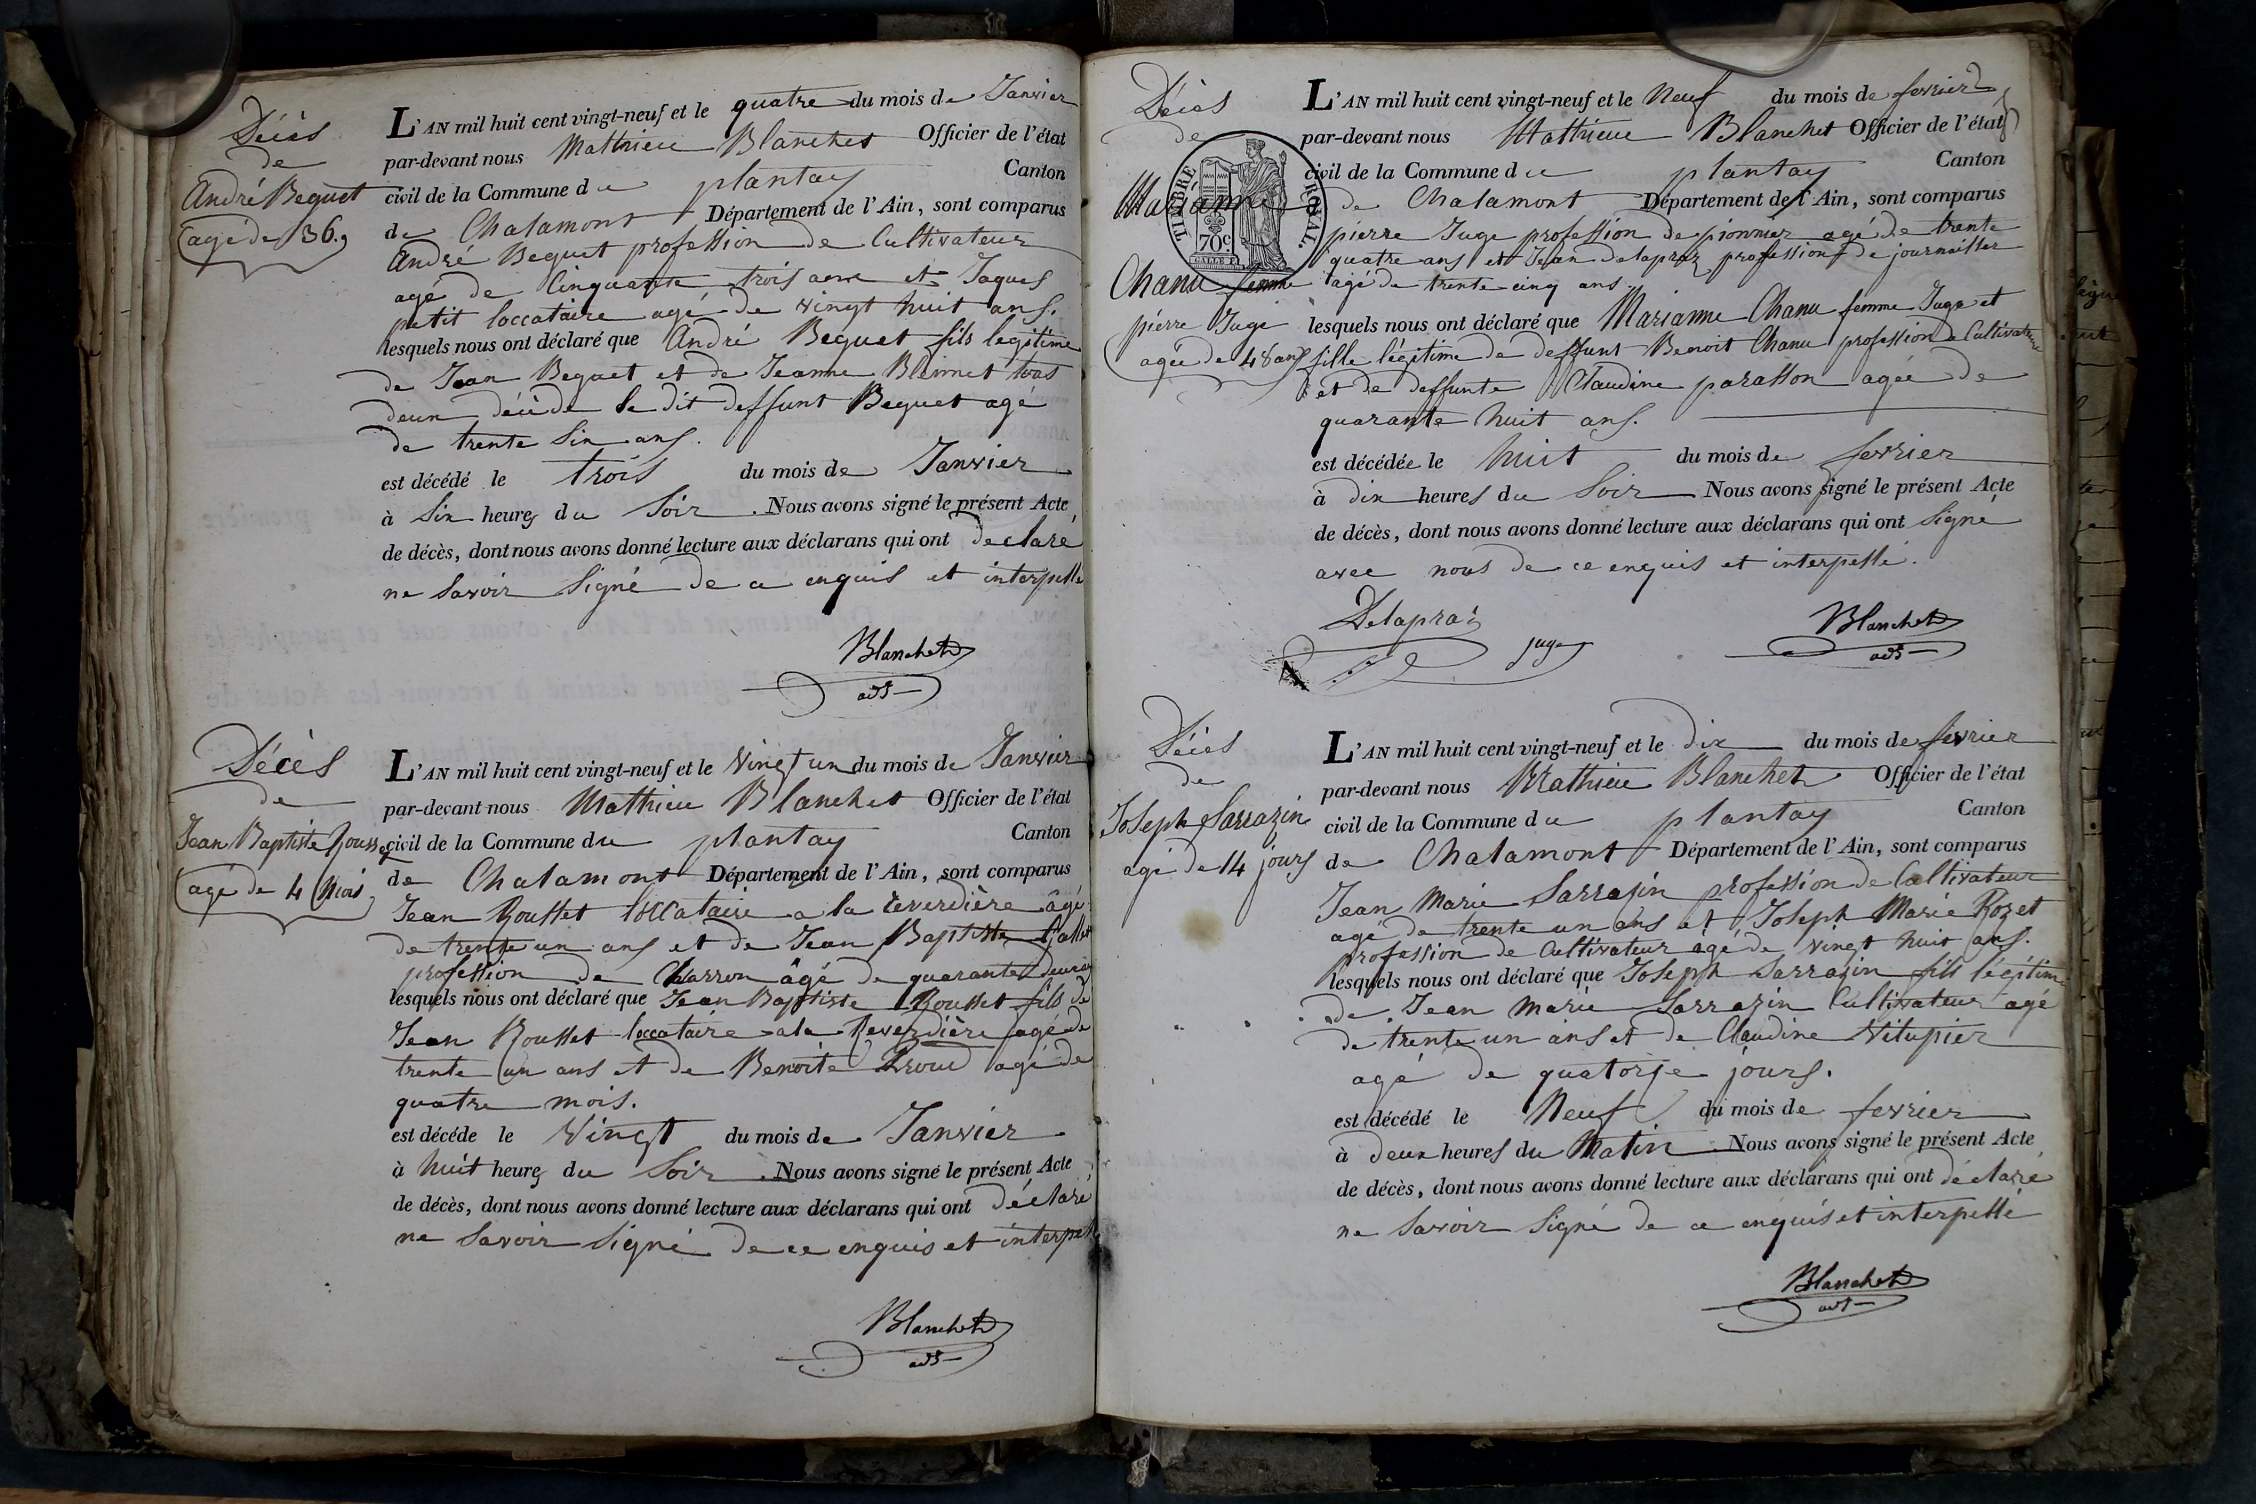 Décès
de
André Beguet
agé de 36.
L'AN mil huit cent vingt-neuf et le quatre du mois de Janvier
par-devant nous Mathieu Blanchet Officier de l'état
civil de la Commune du plantay Canton
de Chalamont Département de l'Ain, sont comparus
André Beguet profession de Cultivateur
agé de Cinquante trois ans et Jaques
petit loccataire agé de vingt huit ans.
lesquels nous ont déclaré que André Beguet fils legitime
de Jean Beguet et de Jeanne tous
deux décédé le dit deffunt Beguet agé
de trente Six ans.
est décédé le trois du mois de Janvier
à Six heures du Soir. Nous avons signé le présent Acte
de décès, dont nous avons donné lecture aux déclarans qui ont declaré
ne Savoir Signé de ce enquis et interpellé
Blanchet
adj
Décès
de
Jean Baptiste Rousset
agé de 4 Mois
L'AN mil huit cent vingt-neuf et le Vingt un du mois de Janvier
par-devant nous Mathieu Blanchet Officier de l'état
civil de la Commune du plantay Canton
de Chalamont Département de l'Ain, sont comparus
Jean Rousset loccataire a la reverdière âgé
de trente un ans et de Jean Baptiste
profession de Charron âgé de quarante deux
lesquels nous ont déclaré que Jean Baptiste Rousset fils de
Jean Rousset loccataire a la Reverdière agé de
trente un ans et de Benoite agé de
quatre mois.
est décéde le Vingt du mois de Janvier
à huit heures du Soir. Nous avons signé le présent Acte
de décès, dont nous avons donné lecture aux déclarans qui ont déclaré
ne Savoir Signé de ce enquis et interpellé
Blanchet
adj
Décès
de
Marianne
Chanu femme
pierre Juge
agée de 48 ans
TIMBRE ROYAL.
70c
L'AN mil huit cent vingt-neuf et le Neuf du mois de fevrier
par-devant nous Matthieu Blanchet Officier de l'état
civil de la Commune du plantay Canton
de Chalamont Département de l'Ain, sont comparus
pierre Juge profession de pionnier agé de trente
quatre ans et Jean Delapraz profession de journallier
agé de trente cinq ans.
lesquels nous ont déclaré que Marianne Chanu femme Juge et
fille légitime de deffunt Benoit Chanu profession de Cultivateur
et de deffunte Claudine parasson agée de
quarante huit ans.
est décédée le huit du mois de fevrier
à dix heures du Soir Nous avons signé le présent Acte
de décès, dont nous avons donné lecture aux déclarans qui ont Signé
avec nous de ce enquis et interpellé.
Delapraz
juge
Blanchet
adj
Décès
de
Joseph Sarrazin
agé de 14 jours
L'AN mil huit cent vingt-neuf et le dix du mois de fevrier
par-devant nous Mathieu Blanchet Officier de l'état
civil de la Commune du plantay Canton
de Chalamont Département de l'Ain, sont comparus
Jean Marie Sarrazin profession de Cultivateur
agé de trente un ans et Joseph Marie Rozet
profession de Cultivateur agé de vingt huit ans.
lesquels nous ont déclaré que Joseph Sarrazin fils légitime
de Jean Marie Sarrazin Cultivateur agé
de trente un ans et de Claudine Vitupier
agé de quatorze jours.
est décédé le Neuf du mois de fevrier
à deux heures du Matin Nous avons signé le présent Acte
de décès, dont nous avons donné lecture aux déclarans qui ont déclaré
ne Savoir Signé de ce enquis et interpellé
Blanchet
adj